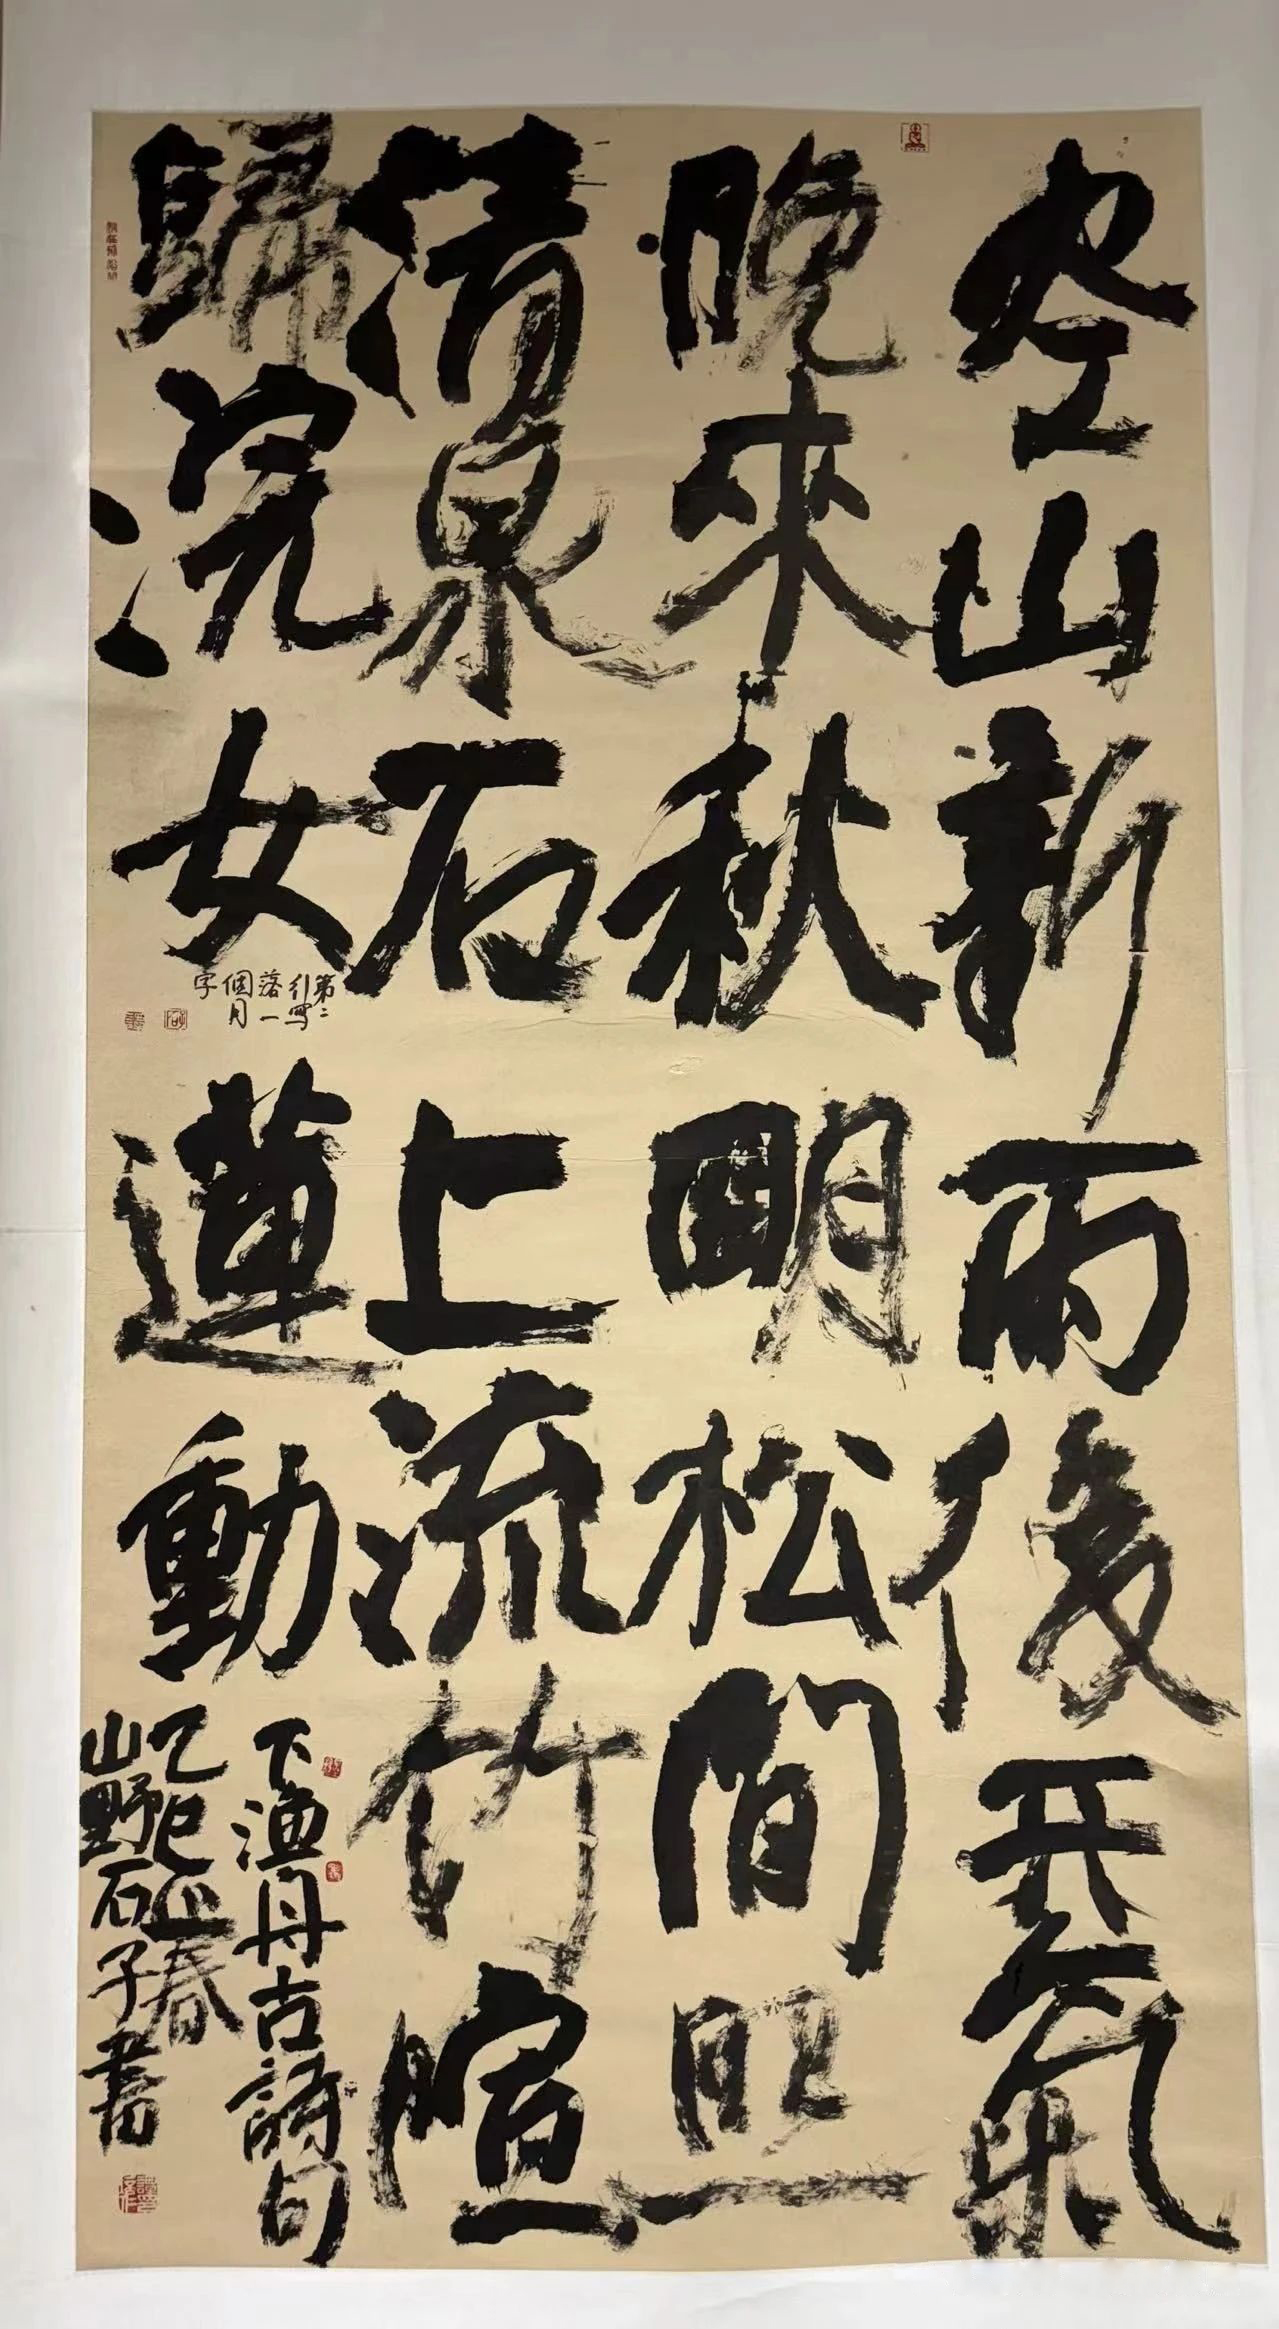 空山新雨後天氣
晚來秋明松間照
清泉石上流竹喧
歸浣女蓮動
下漁舟古詩句
乙巳春
山野石子書
第二
行寫
落一
個月
字